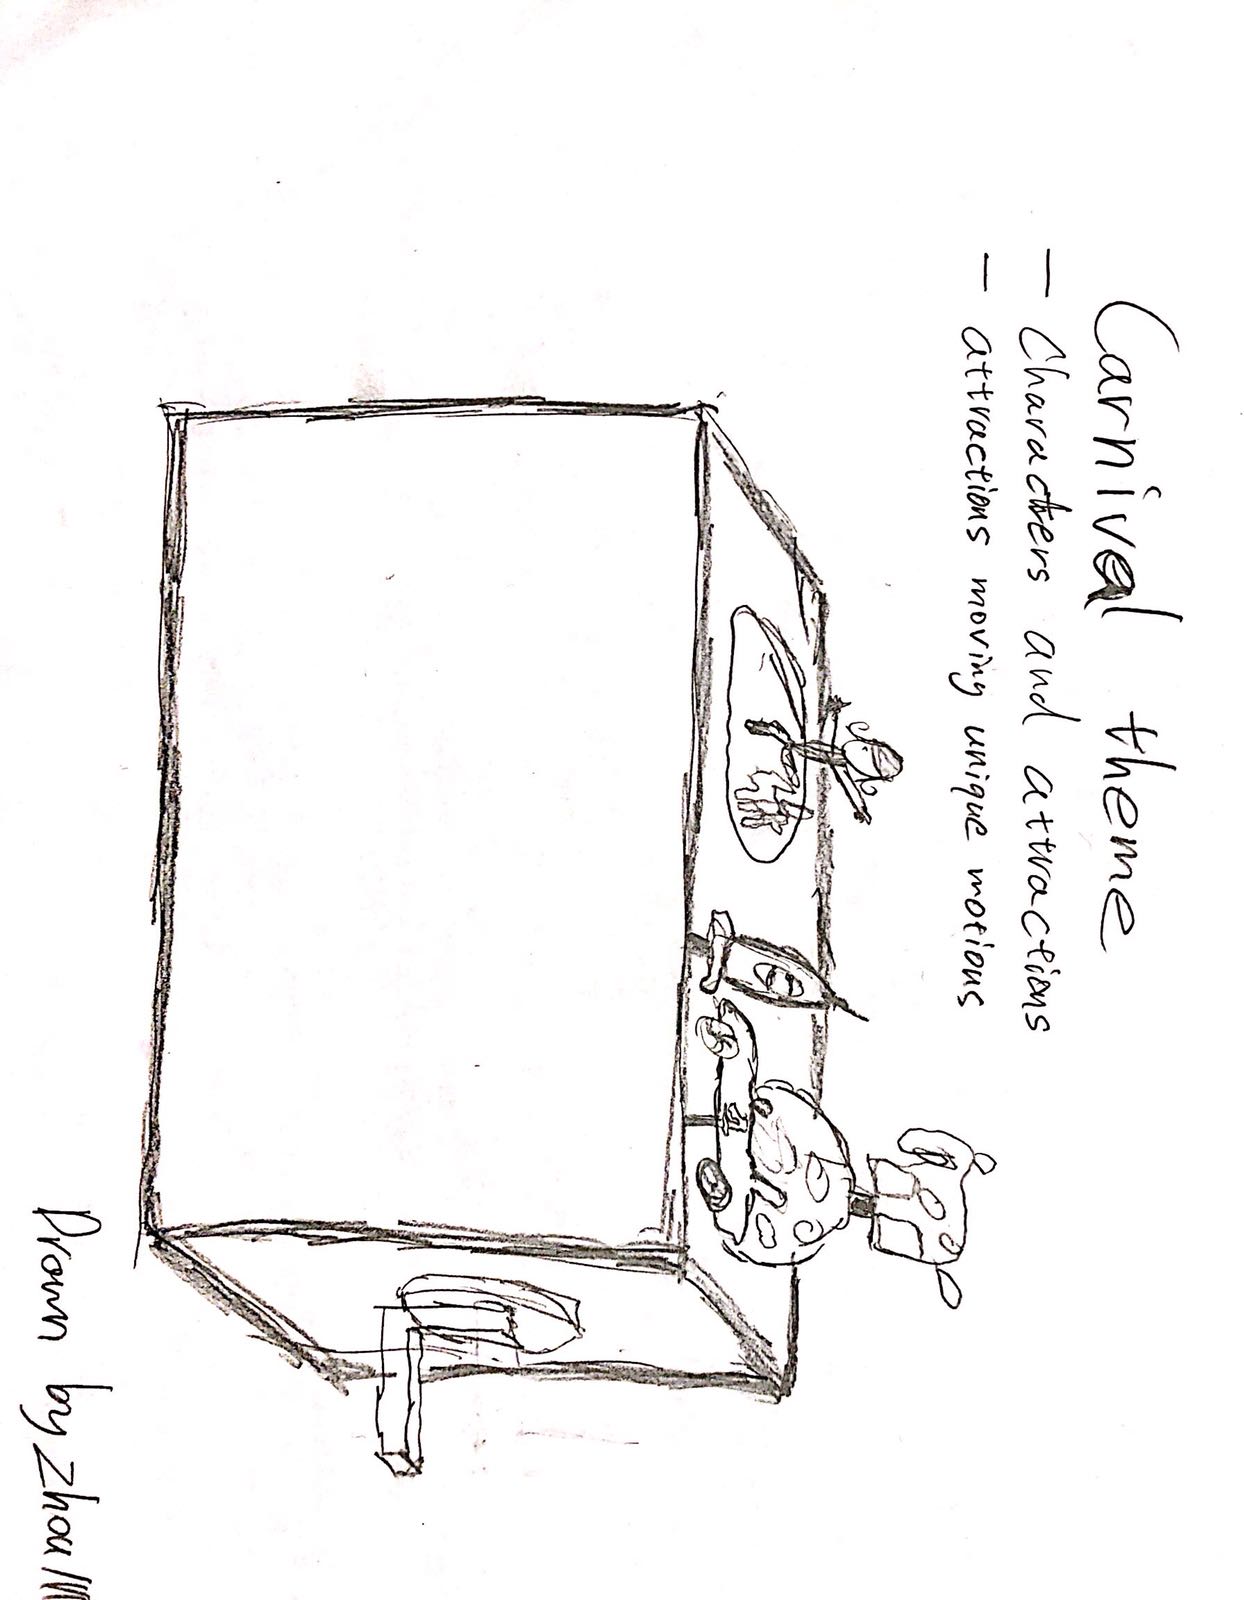 Carnival theme
- Characters and attractions
- attractions moving unique motions
Drawn by Zhou